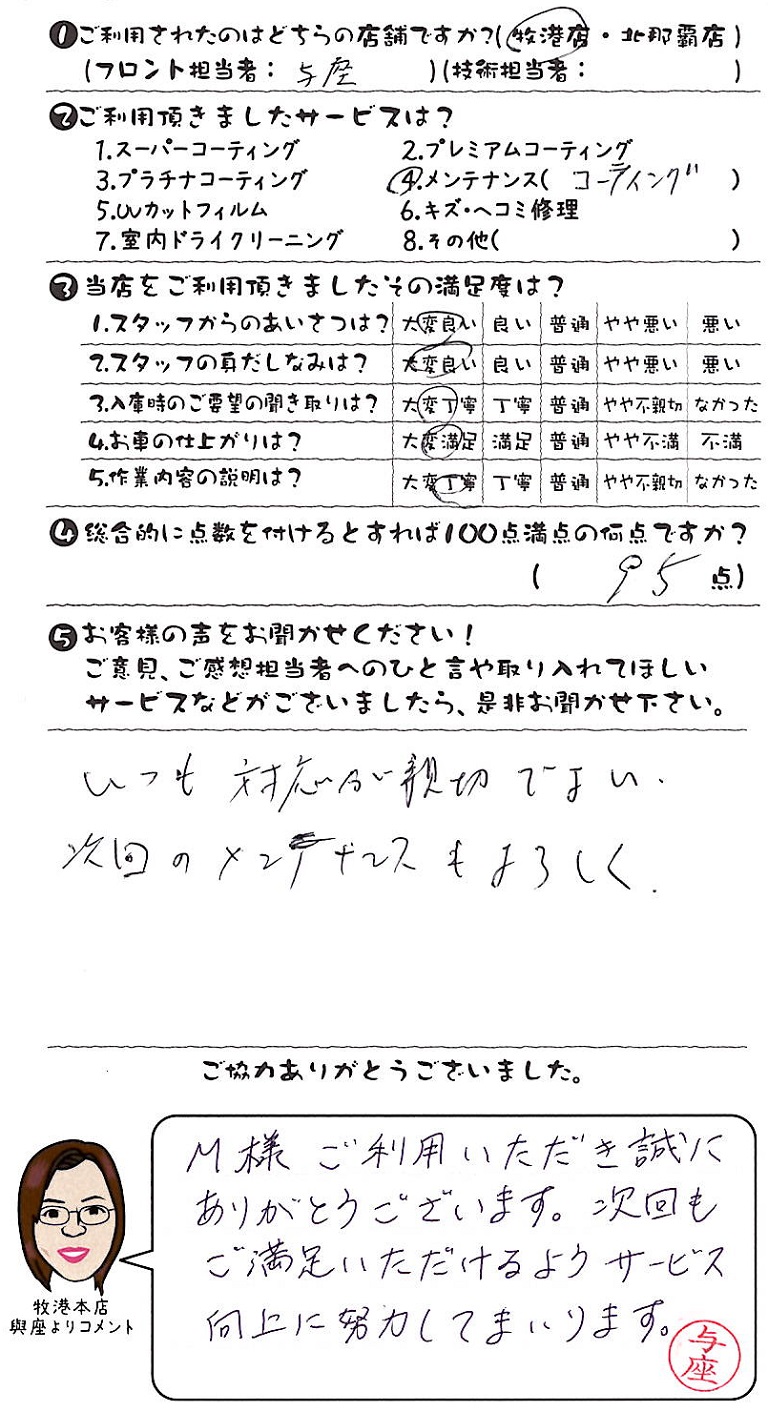 ❶ご利用されたのはどちらの店舗ですか?(牧港店・北那覇店)
(フロント担当者: 与座 )(技術担当者: )
❷ご利用頂きましたサービスは?
1.スーパーコーティング 2.プレミアムコーティング
3.プラチナコーティング 4.メンテナンス( コーティング )
5.UVカットフィルム 6.キズ・ヘコミ修理
7.室内ドライクリーニング 8.その他( )
❸当店をご利用頂きましたその満足度は?
1.スタッフからのあいさつは? 大変良い 良い 普通 やや悪い 悪い
2.スタッフの身だしなみは? 大変良い 良い 普通 やや悪い 悪い
3.入庫時のご要望の聞き取りは? 大変丁寧 丁寧 普通 やや不親切 なかった
4.お車の仕上がりは? 大変満足 満足 普通 やや不満 不満
5.作業内容の説明は? 大変丁寧 丁寧 普通 やや不親切 なかった
❹総合的に点数を付けるとすれば100点満点の何点ですか?
( 95 点)
❺お客様の声をお聞かせください!
ご意見、ご感想担当者へのひと言や取り入れてほしい
サービスなどがございましたら、是非お聞かせ下さい。
いつも対応が親切でよい.
次回のメンテナンスもよろしく.
ご協力ありがとうございました。
M様 ご利用いただき誠に
ありがとうございます。次回も
ご満足いただけるようサービス
向上に努力してまいります。
与座
牧港本店
與座よりコメント